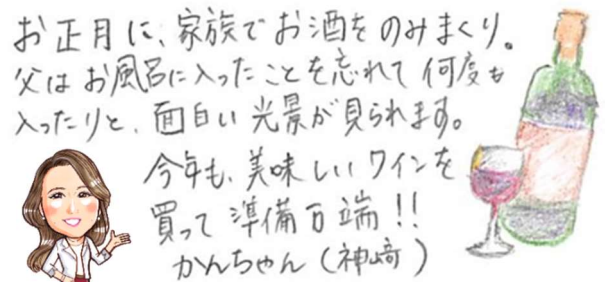 お正月に、家族でお酒をのみまくり。
父はお風呂に入ったことを忘れて何度も
入ったりと、面白い光景が見られます。
今年も、美味しいワインを
買って準備万端!!
かんちゃん(神﨑)